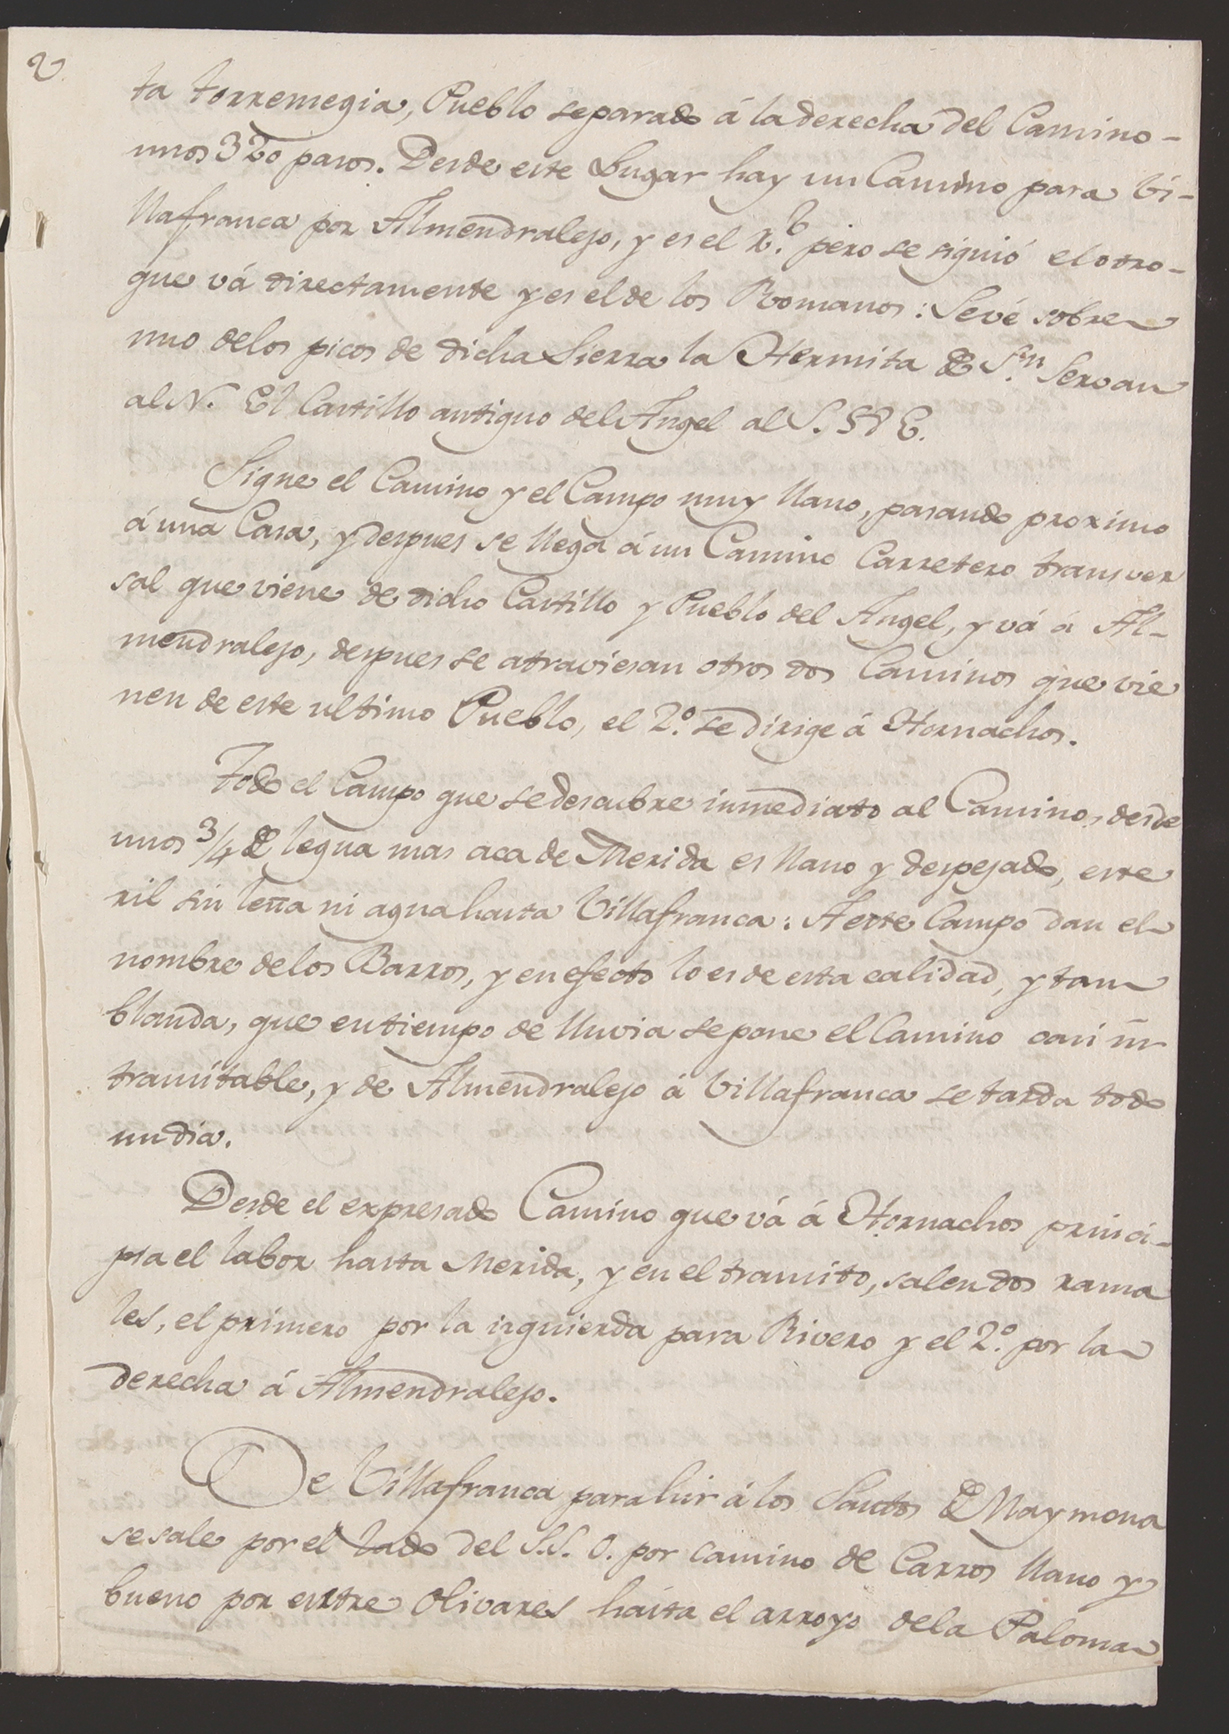 2
ta torremegia, Pueblo separado á la derecha del Camino-
unos 320 pasos. Desde este Lugar hay un Camino para Vi-
llafranca por Almendralejo, y es el R.l pero se siguió el otro-
que vá directamente y es el de los Romanos: Se vé sobre
uno de los picos de dicha Sierra la Hermita de S.n Servan
al N. El Castillo antiguo del Angel al S.
Sigue el Camino y el Campo muy llano, pasando proximo
á una Casa, y despues se llega á un Camino Carretero transver
sal que viene de dicho Castillo y Pueblo del Angel, y vá á Al-
mendralejo, despues se atraviesan otros dos Caminos que vie
nen de este ultimo Pueblo, el 2.º se dirige á Hornachos.
Todo el Campo que se descubre inmediato al Camino, desde
unos 3/4 de legua mas aca de Merida es llano y despejado, este
ril sin leña ni agua hasta Villafranca: A este Campo dan el
nombre de los Barros, y en efecto lo es de esta calidad, y tan
blanda, que en tiempo de lluvia se pone el Camino casi in
transitable, y de Almendralejo á Villafranca se tarda todo
un dia.
Desde el expresado Camino que vá á Hornachos princi-
pia el labor hasta Merida, y en el transito, salen dos rama
les, el primero por la izquierda para Rivero y el 2.º por la
derecha á Almendralejo.
De Villafranca para hir á los Santos de Maymona
se sale por el lado del S.S.O. por camino de Carros llano y
bueno por entre Olivares hásta el arroyo de la Paloma